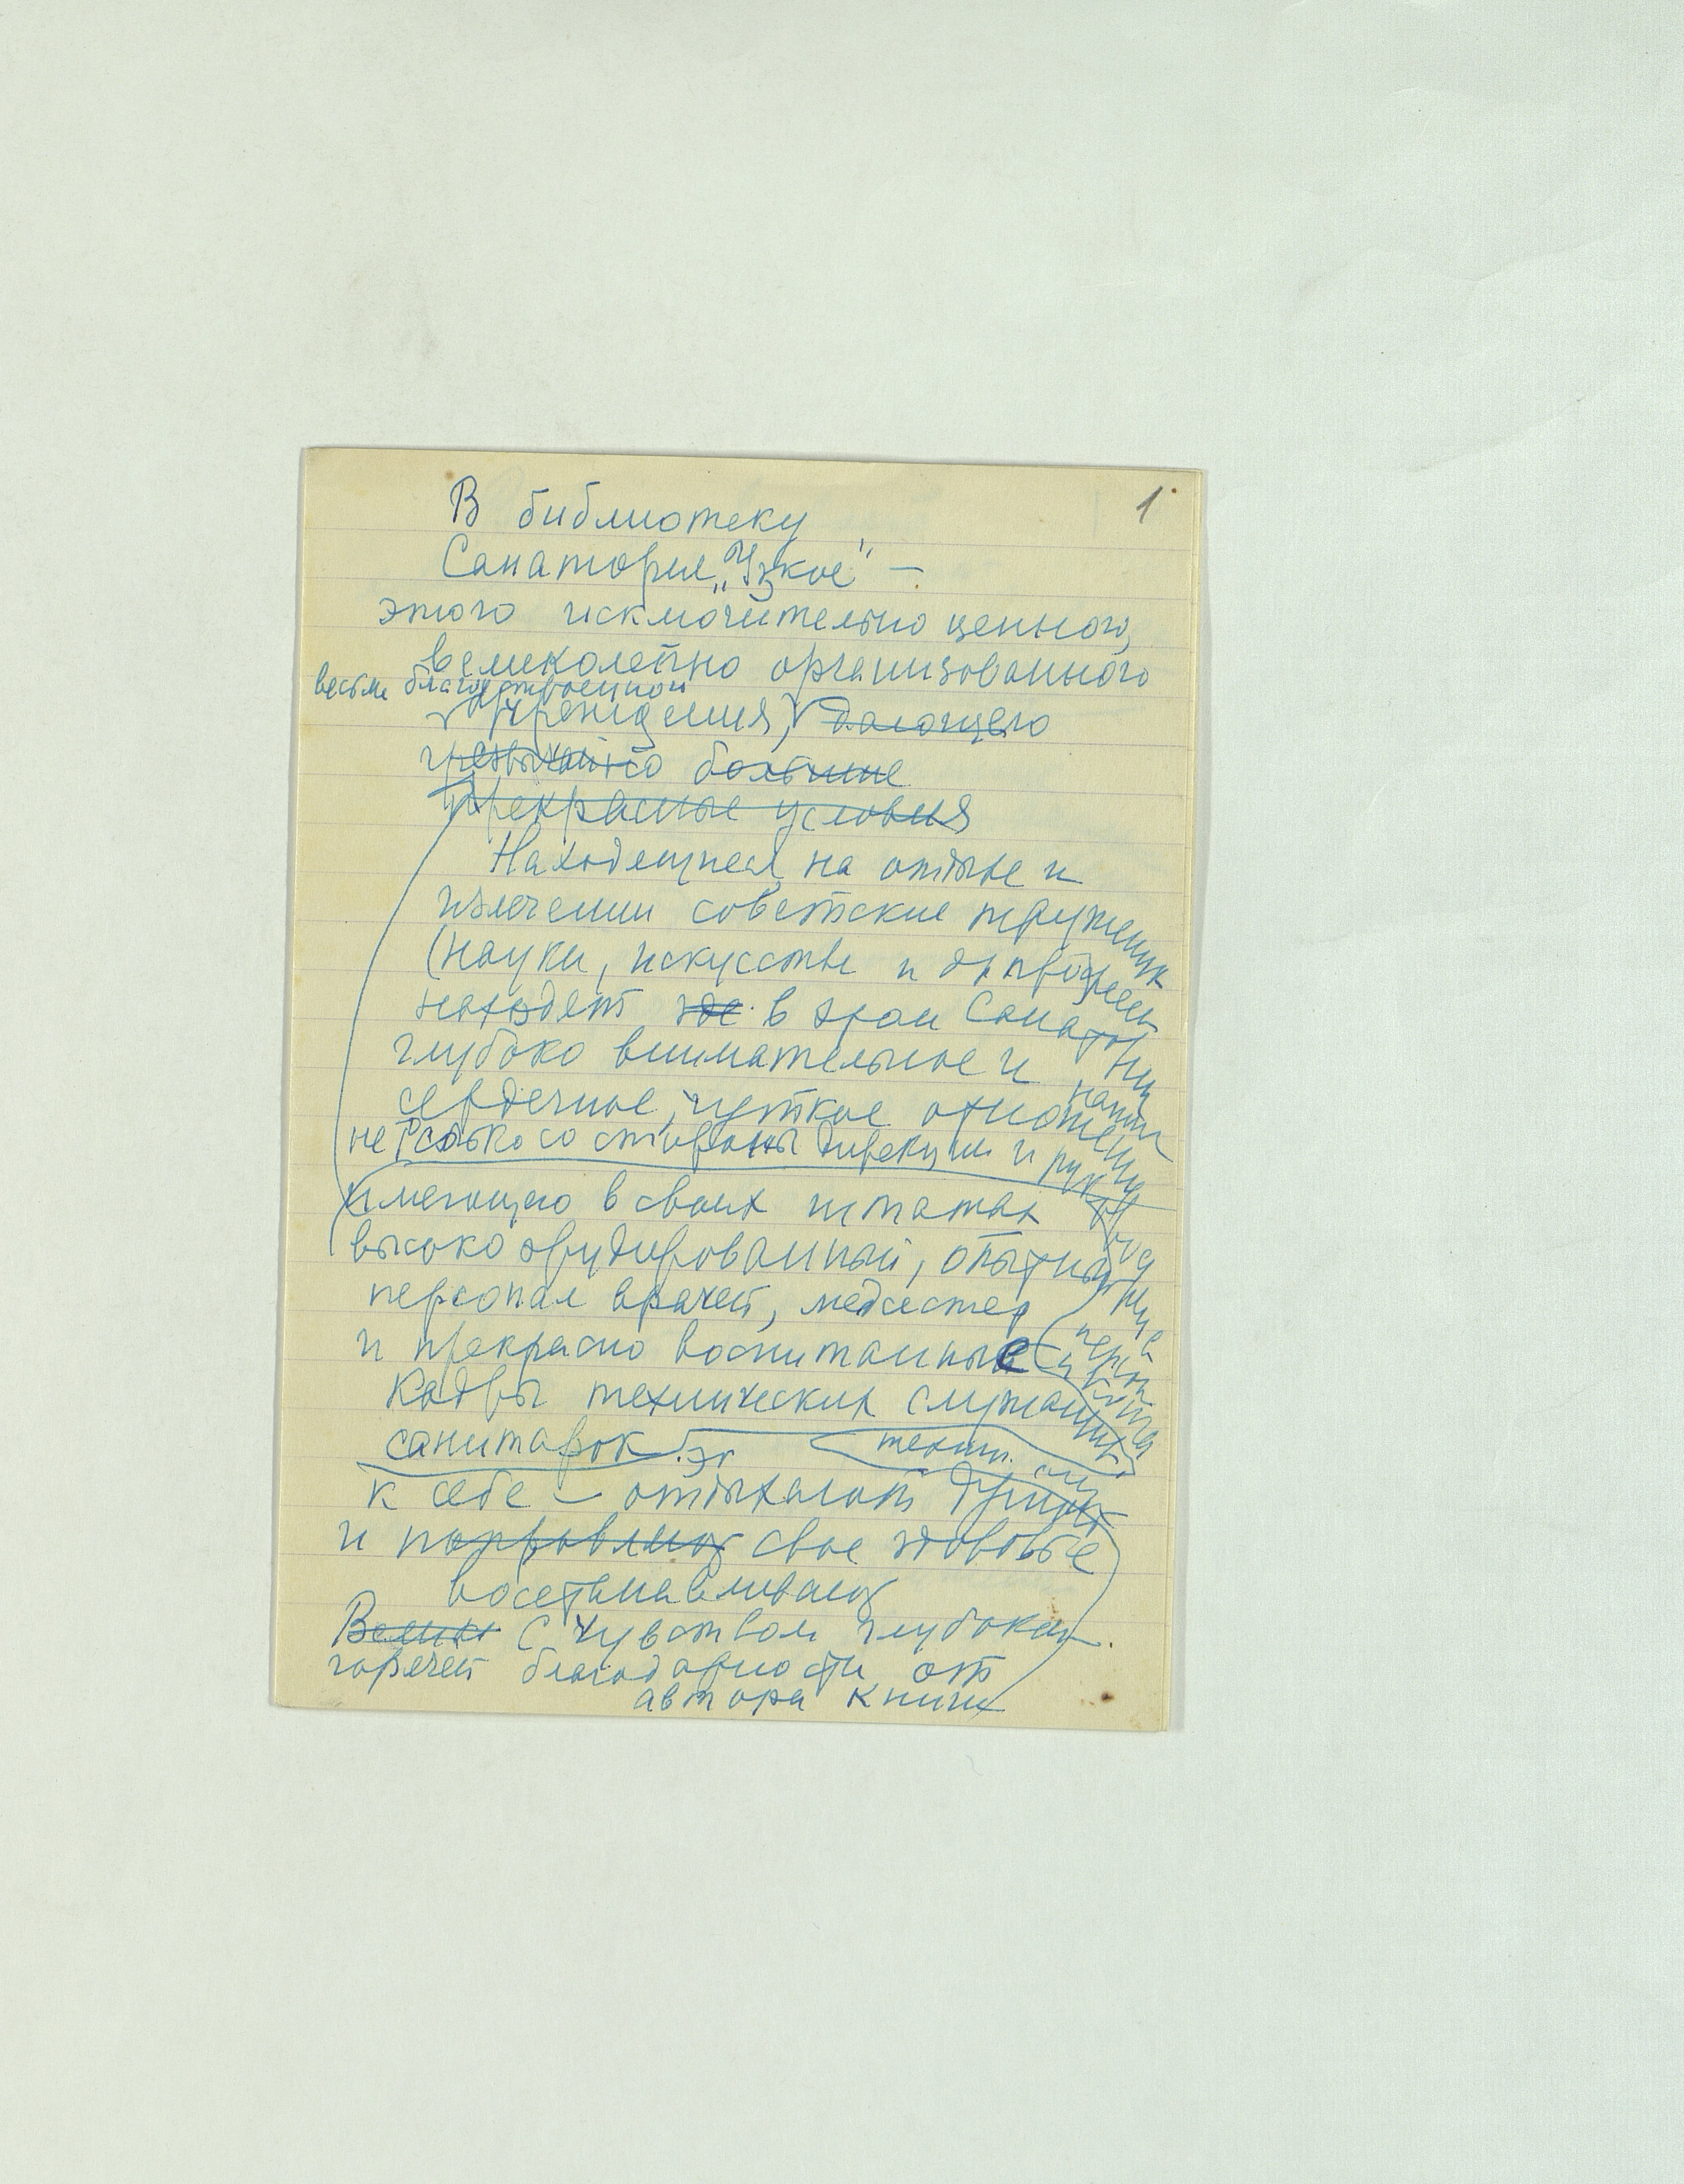 1
В библиотеку
Санатория „Узкое" —
этого исключительно ценного,
великолепно организованного
весьма благоустроенного
учреждения, дающего
чрезвычайно большие
прекрасные условия
Находящиеся на отдыхе и
излечении советские труженики
(науки, искусства и др. профессий
находят в этом Санатории
глубоко внимательное и
сердечное, чуткое отношение
не только со стороны дирекции и руководящие
имеющего в своих штатах
высоко эрудированный, опытный
персонал врачей, медсестер
и прекрасно воспитанные
кадры технических служащих
санитарок
к себе — отдыхают душой
и поправляют свое здоровье
восстанавливают
С чувством глубокой
горячей благодарности от
автора книги